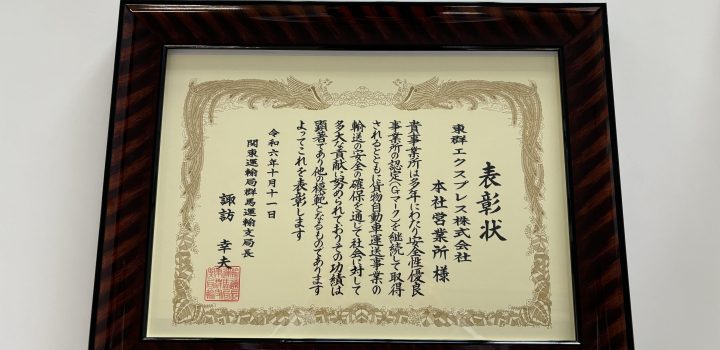 表彰状
東群エクスプレス株式会社
本社営業所 様
貴事業所は多年にわたり安全性優良
事業所の認定(Gマーク)を継続して取得
されるとともに貨物自動車運送事業の
輸送の安全の確保を通じて社会に対して
多大な貢献に努められておりその功績は
顕著であり他の模範となるものであります
よってこれを表彰します
令和六年十月十一日
関東運輸局群馬運輸支局長
諏訪 幸夫